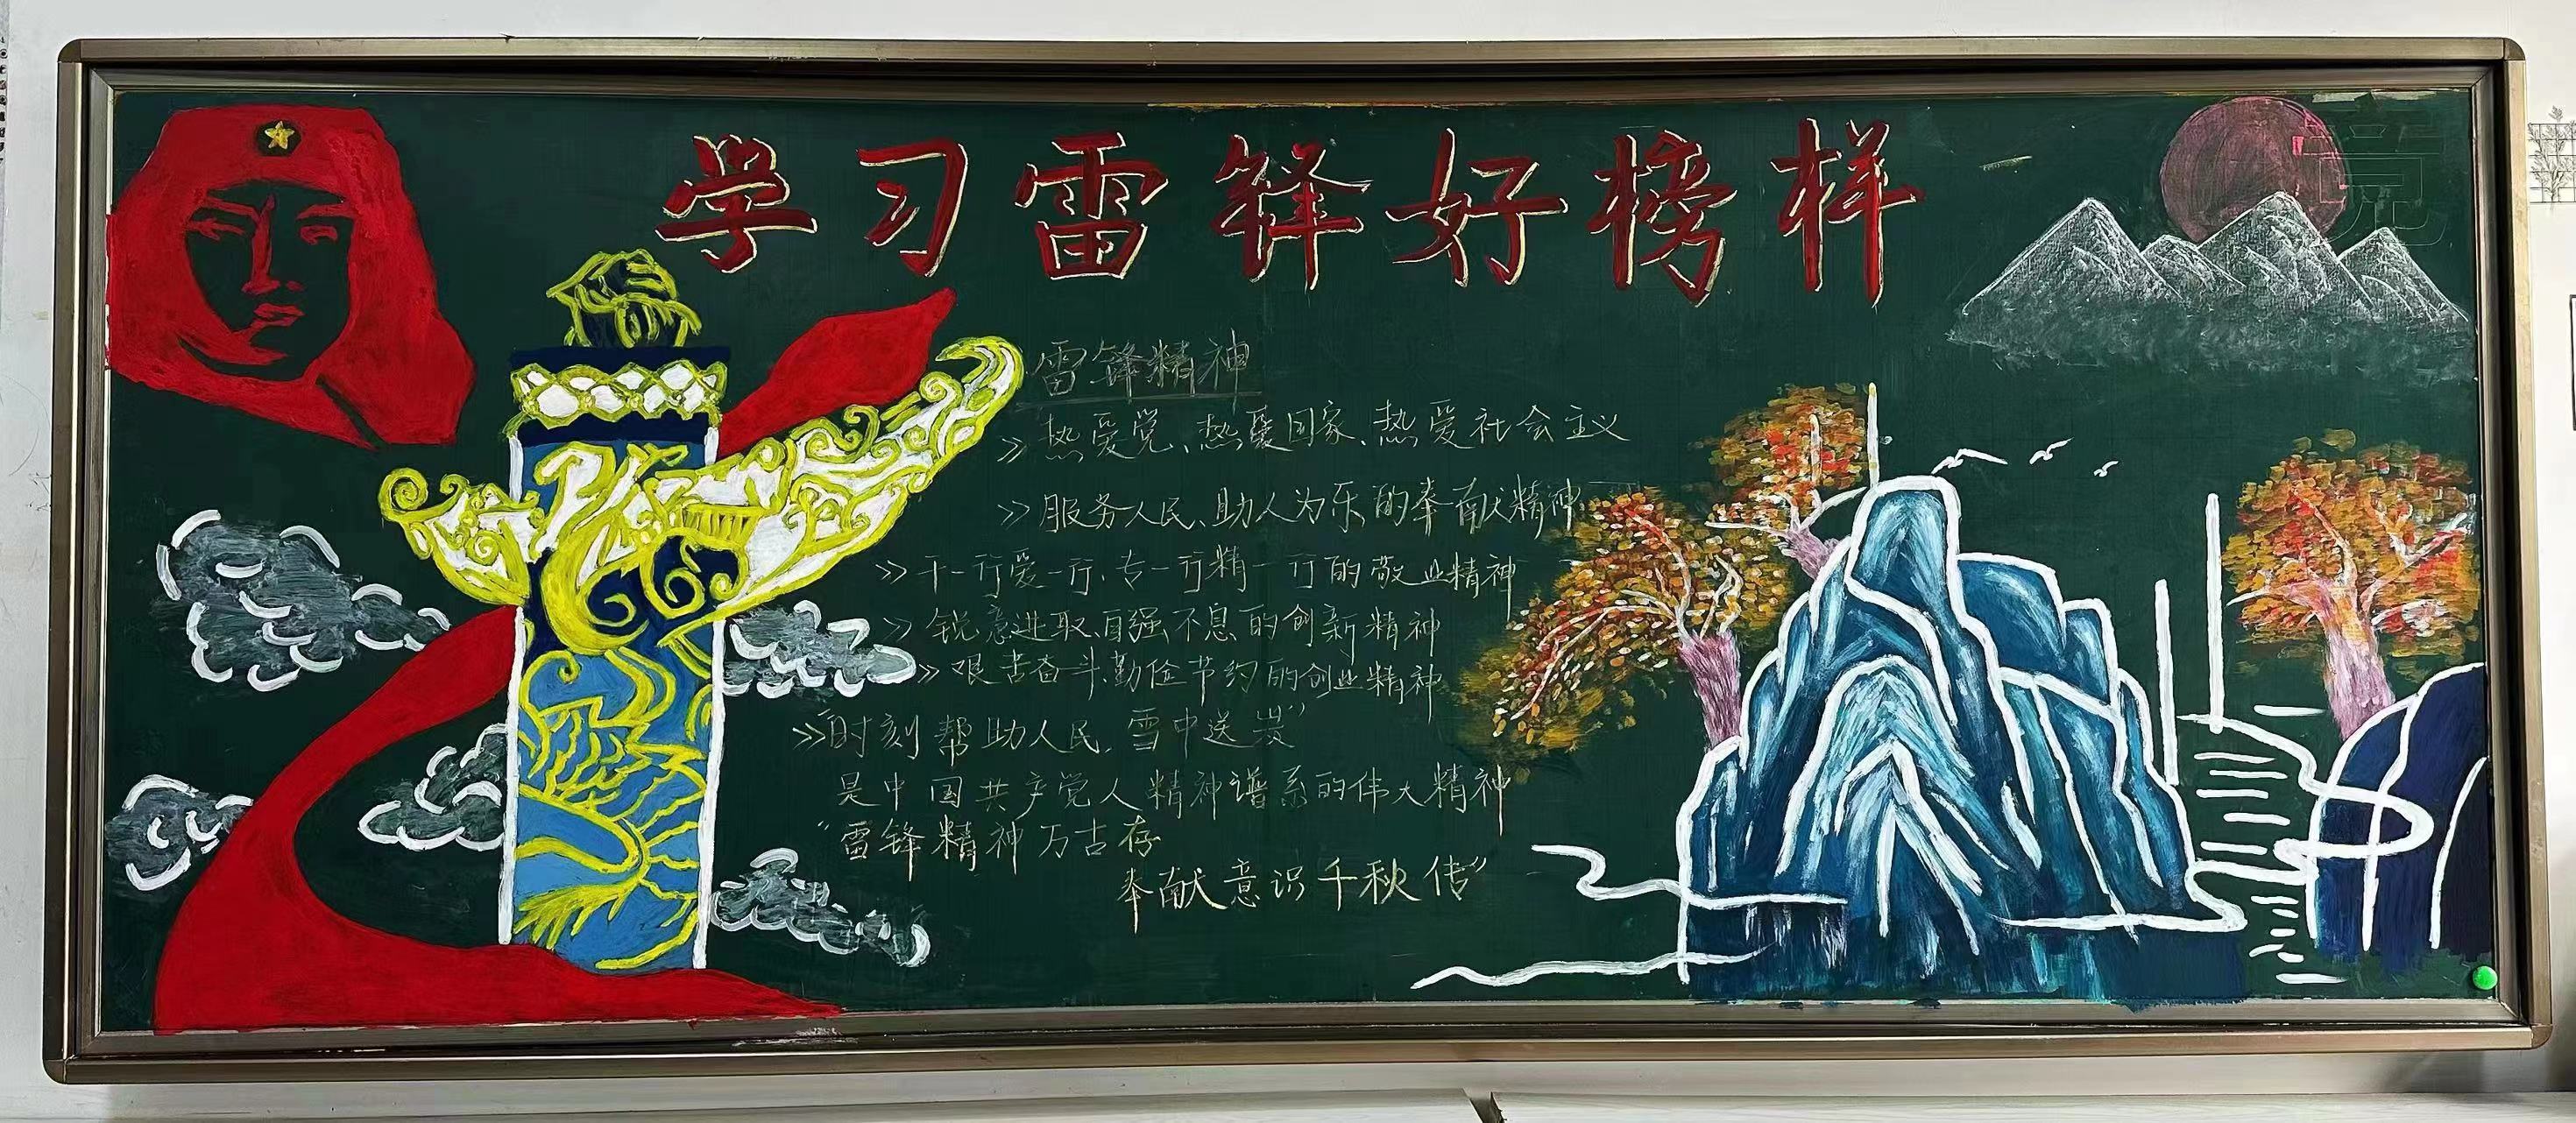 学习雷锋好榜样
雷锋精神
》热爱党、热爱国家、热爱社会主义
》服务人民、助人为乐的奉献精神
》干一行爱一行、专一行精一行的敬业精神
》锐意进取、自强不息的创新精神
》艰苦奋斗、勤俭节约的创业精神
》"时刻帮助人民,雪中送炭"
是中国共产党人精神谱系的伟大精神
"雷锋精神万古存
奉献意识千秋传"